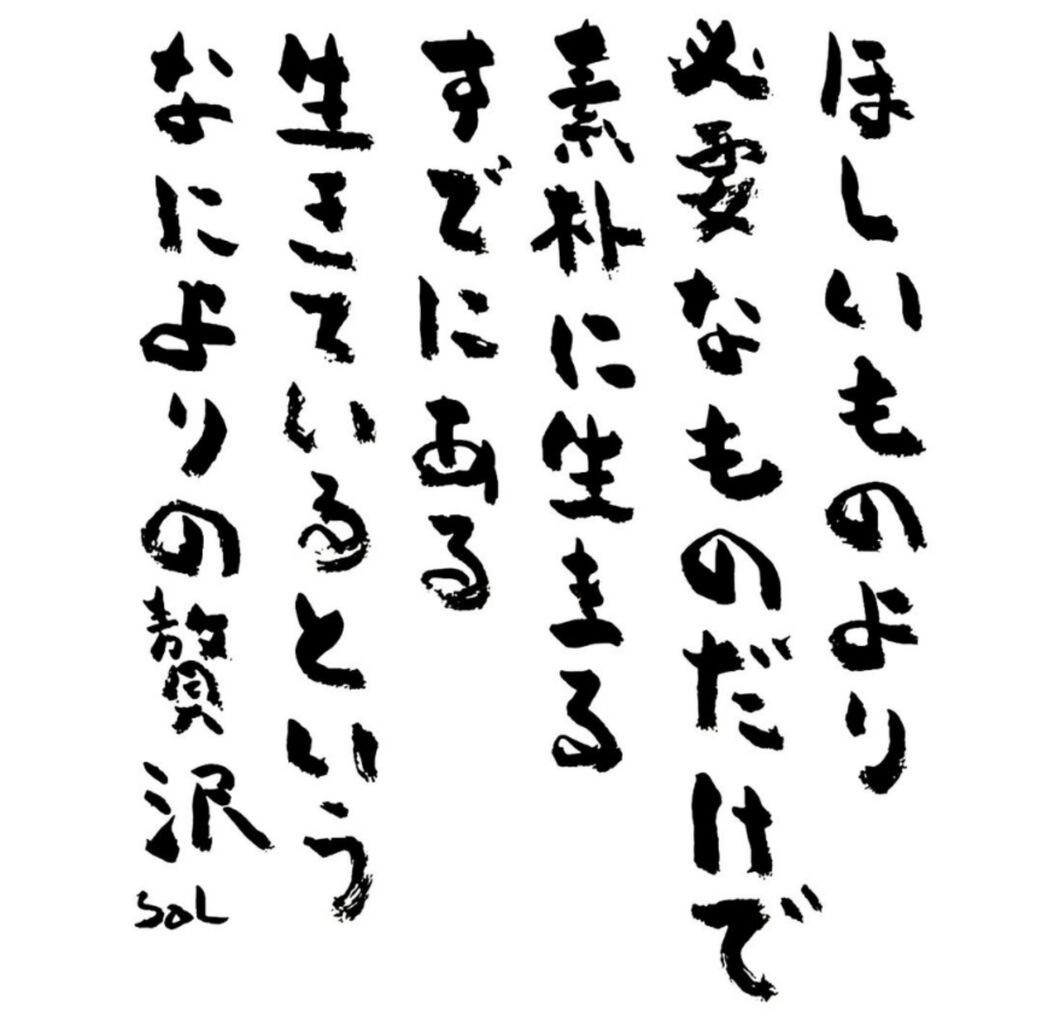 ほしいものより
必要なものだけで
素朴に生きる
すでにある
生きているという
なによりの贅沢
SOL